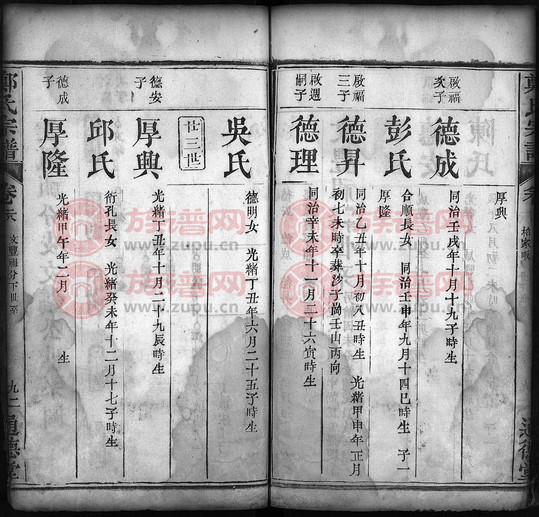 厚興
啟福
次子
德成
同治壬戌年十月十九子時生
彭氏
合順長女 同治壬申年九月十四巳時生 子一
厚隆
啟福
三子
德昇
同治乙丑年十月初八丑時生 光緒甲申年正月
初七未時卒葬沙子崗壬山丙向
啟遇
嗣子
德理
同治辛未年十一月二十六寅時生
吳氏
德明女 光緒丁丑年六月二十五子時生
廿三世
德安
子
厚興
光緒丁丑年十月二十九辰時生
邱氏
衍孔長女 光緒癸未年十二月十七子時生
德成
子
厚隆
光緒甲午年二月 生
鄭氏宗譜
卷
九一
通德堂
族谱网
www.zupu.cn
族谱网
www.zupu.cn
族谱网
www.zupu.cn
族谱网
www.zupu.cn